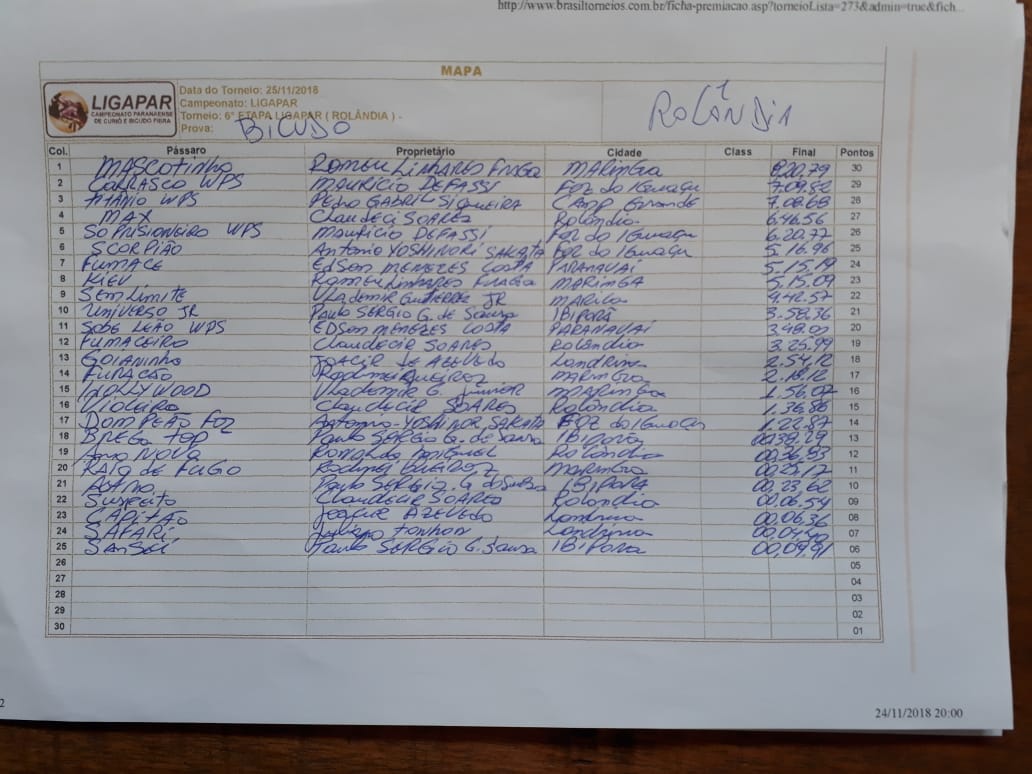 http://www.brasiltorneios.com.br/ficha-premiacao.asp?torneioLista=273&admin=true&fich...
MAPA
LIGAPAR
CAMPEONATO PARANAENSE
DE CURIÓ E BICUDO FIBRA
Data do Torneio: 25/11/2018
Campeonato: LIGAPAR
Torneio: 6ª ETAPA LIGAPAR ( ROLÂNDIA ) -
Prova: BICUDO
ROLÂNDIA
Col. Pássaro Proprietário Cidade Class Final Pontos
1 MASCOTINHO ROMEU LINHARES FRAGA MARINGA 820,79 30
2 CARRASCO WPS MAURICIO DEFASSI FOZ do IGUAÇU 7.09.52 29
3 WPS PEDRO GABRIEL SIQUEIRA CAMP. GRANDE 7.08.68 28
4 MAX Claudeci SOARES Rolândia 6.46.56 27
5 SO PRISIONEIRO WPS MAURICIO DEFASSI FOZ do IGUAÇU 6.20.77 26
6 SCORPIÃO Antonio YOSHINORI SAKATA FOZ do IGUAÇU 5.16.96 25
7 FUMACE EDSON MENEZES COSTA PARANAVAI 5.15.19 24
8 KIEV Romeu LINHARES FRAGA MARINGA 5.15.09 23
9 SEM LIMITE VLADEMIR GUTIERREZ JR 4.42.57 22
10 UNIVERSO JR Paulo SERGIO G. de Souza IBIPORÃ 3.58,36 21
11 SOBE LEÃO WPS EDSON MENEZES COSTA PARANAVAI 3.48.07 20
12 FUMACEIRO Claudecir SOARES Rolândia 3.25.99 19
13 GOIANINHO JOACIR DE AZEVEDO Londrina 2.54,12 18
14 FURACÃO MARINGA 17
15 HOLLYWOOD VLADEMIR G. JUNIOR MARINGA 1.56,07 16
16 Violeiro Claudecir SOARES Rolândia 1.36,86 15
17 DOM PEÃO FOZ Antonio YOSHINOR SAKATA FOZ do IGUAÇU 1.22.87 14
18 BREGA TOP Paulo SERGIO G. de Souza IBIPORA 0038,29 13
19 Ano NOVO Ronaldo MIGUEL Rolândia 00.26,93 12
20 RAIO de FUGO MARINGA 00.25,17 11
21 Paulo SERGIO. G. de Souza IBIPORA 00.23,62 10
22 Suspeito Claudecir SOARES Rolândia 00.06.54 09
23 CAPITÃO Joacir AZEVEDO Londrina 00.06,36 08
24 SAFARI Londrina 07
25 SANSEI Paulo SERGIO G. Souza IBIPORA 06
26 05
27 04
28 03
29 02
30 01
2
24/11/2018 20:00